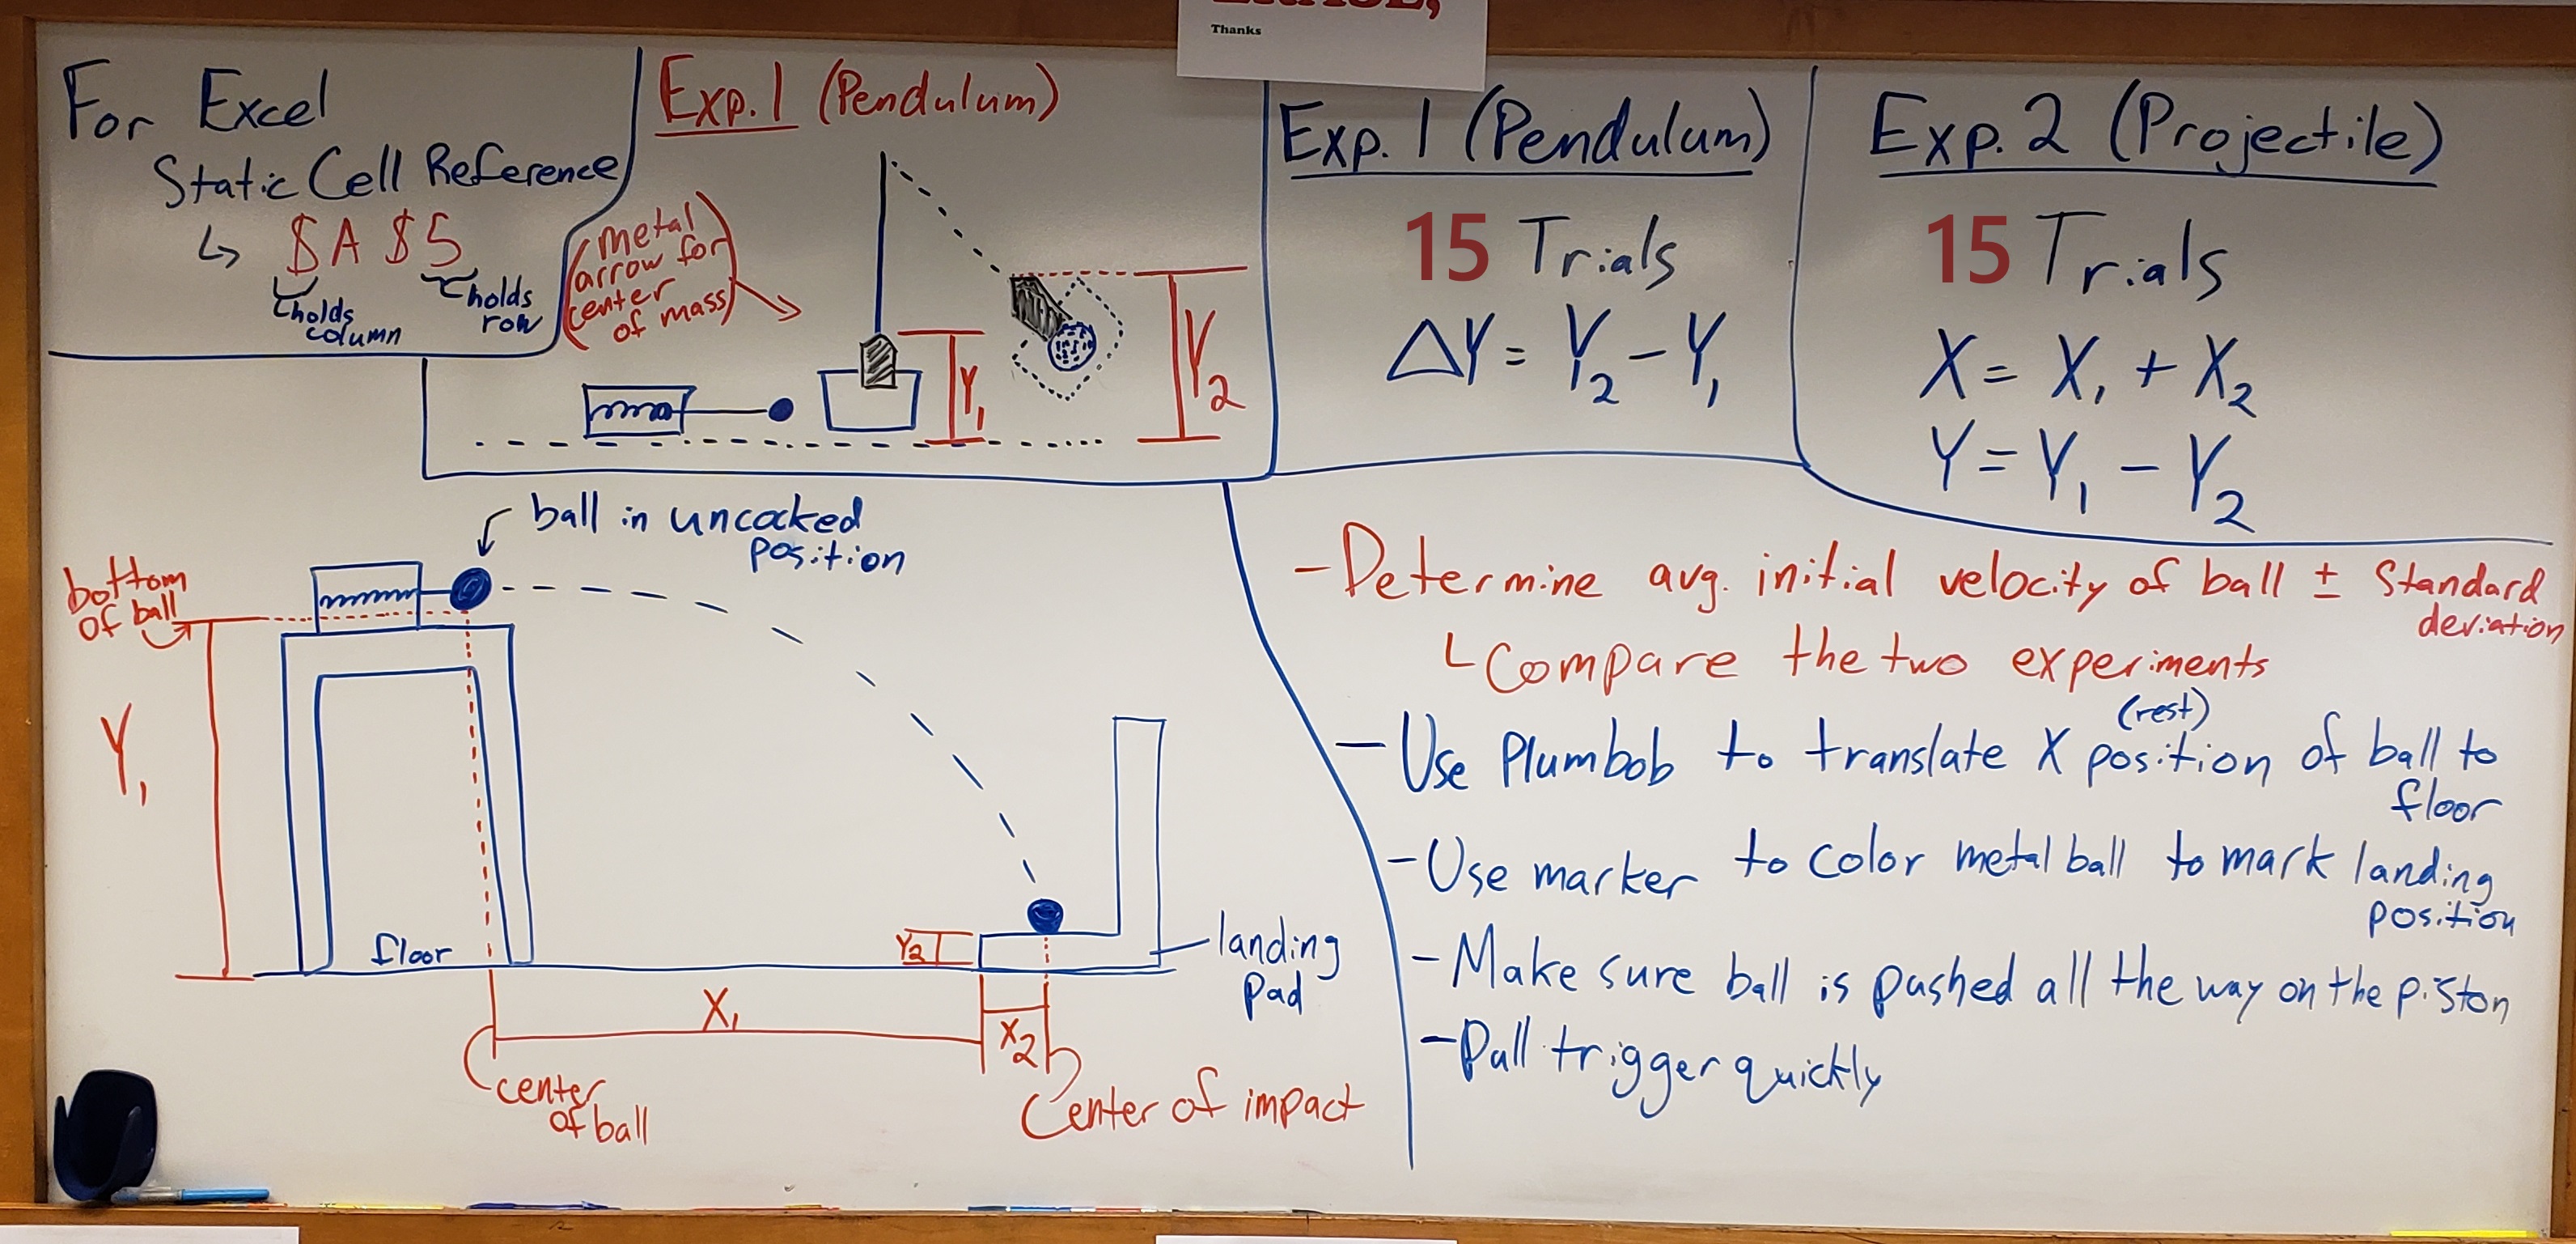 Thanks
For Excel
Static Cell Reference
↳ $A $5
holds
column
holds
row
Exp. 1 (Pendulum)
(metal
arrow for
center
of mass)
Y1
Y2
Exp. 1 (Pendulum)
15 Trials
ΔY = Y2 - Y1
Exp. 2 (Projectile)
15 Trials
X = X1 + X2
Y = Y1 - Y2
ball in uncocked
position
bottom
of ball
Y1
floor
Y2
landing
pad
X1
X2
center
of ball
Center of impact
- Determine avg. initial velocity of ball ± Standard
deviation
Compare the two experiments
(rest)
- Use Plumbob to translate X position of ball to
floor
- Use marker to color metal ball to mark landing
position
- Make sure ball is pushed all the way on the piston
- Pull trigger quickly